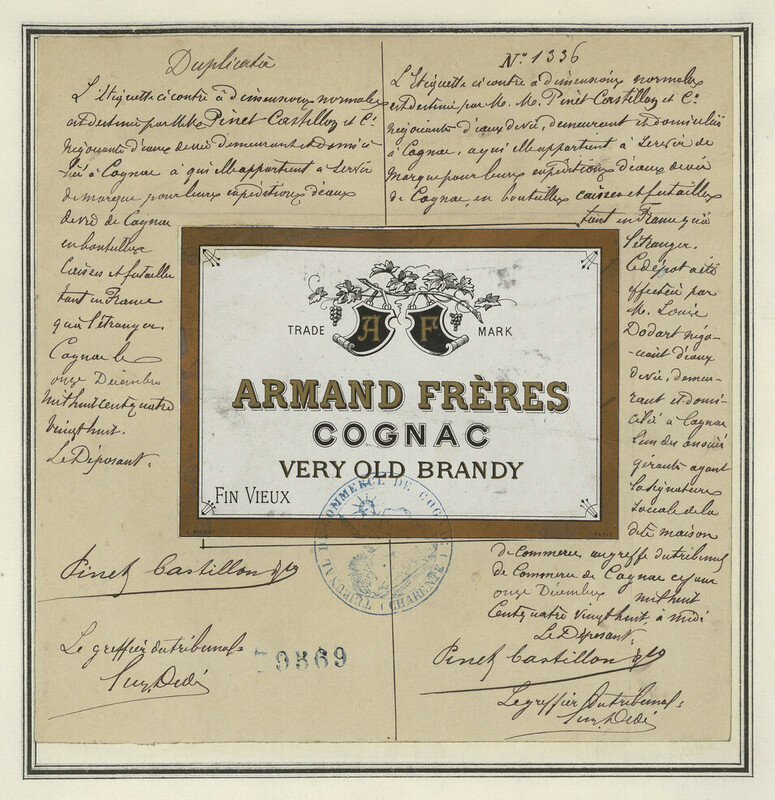 Duplicata
L'Etiquette ci contre à dimensions normales
est destinée par M.M. Pinet Castillon et Cⁱᵉ
négociants d'eaux de vie demeurant et domici-
liés à Cognac à qui elle appartient à servir
de marque pour leurs expéditions d'eaux
de vie de Cognac
en bouteilles
caisses et futailles
tant en France
qu'à l'étranger.
Cognac le
onze Décembre
mil huit cent quatre
vingt huit.
Le Déposant:
Pinet Castillon & Cⁱᵉ
Le greffier du tribunal:
N° 1336
L'Etiquette ci contre à dimensions normales
est destinée par M. M. Pinet Castillon et Cⁱᵉ
négociants d'eaux de vie, demeurant et domiciliés
à Cognac, à qui elle appartient à servir de
marque pour leurs expéditions d'eaux de vie
de Cognac, en bouteilles caisses et futailles
tant en France qu'à
l'étranger.
Ce dépôt a été
effectué par
M. Louis
Dodart négo-
-ciant d'eaux
de vie, demeu-
rant et domi-
cilié à Cognac
l'un des associés
gérants ayant
la signature
sociale de la
dite maison
de Commerce au greffe du tribunal
de Commerce de Cognac ce jour
onze Décembre mil huit
cent quatre vingt huit, à midi
Le Déposant:
Pinet Castillon & Cⁱᵉ
Le greffier du tribunal:
TRADE MARK
A F
ARMAND FRÈRES
COGNAC
VERY OLD BRANDY
FIN VIEUX
TRIBUNAL DE COMMERCE DE COGNAC (CHARENTE)
0569